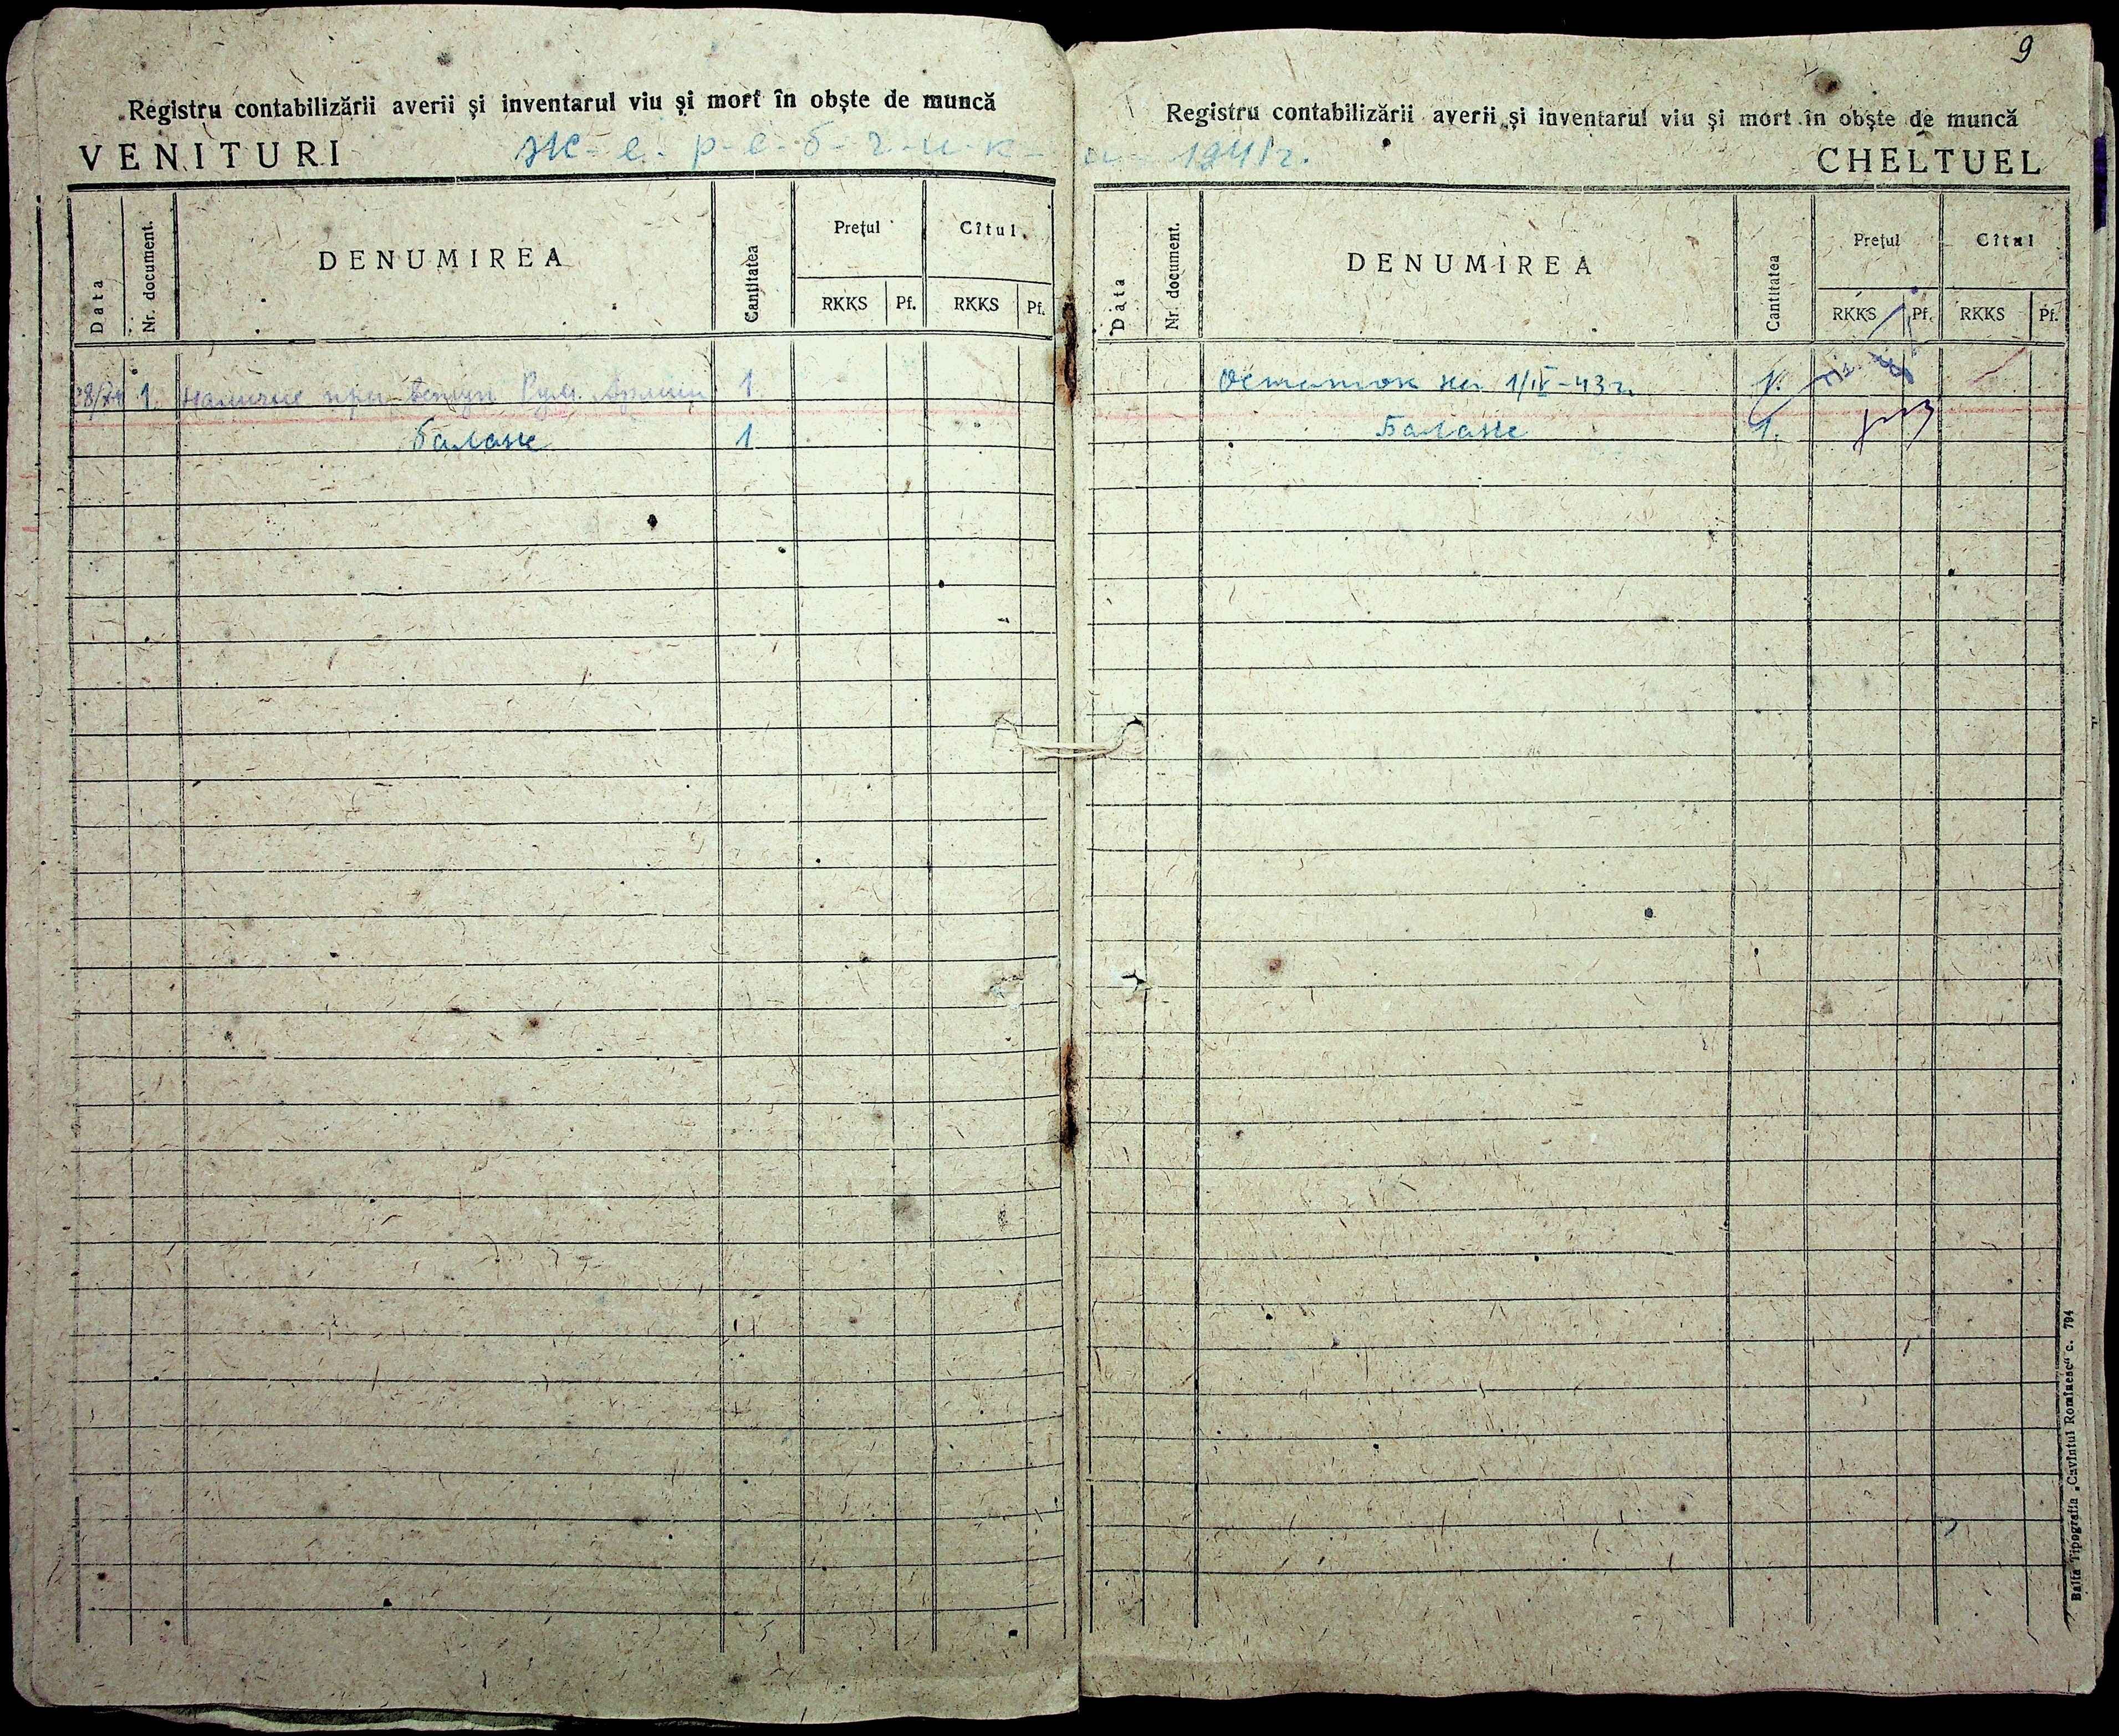 9
Registru contabilizării averii și inventarul viu și mort în obște de muncă
VENITURI
Ж-е-р-е-б-ч-и-к-и 1941 г.
Data
Nr. document.
DENUMIREA
Cantitatea
Prețul
Cîtul
RKKS Pf. RKKS Pf.
1. Наличие при вступ Рум. Армии 1.
баланс 1
Registru contabilizării averii și inventarul viu și mort în obște de muncă
CHELTUEL
Data
Nr. document.
DENUMIREA
Cantitatea
Prețul
Cîtul
RKKS Pf. RKKS Pf.
Остаток на 1/IV-43 г. 1.
Баланс 1.
Balta Tipografia „Cavîntul Romînesc" c. 794